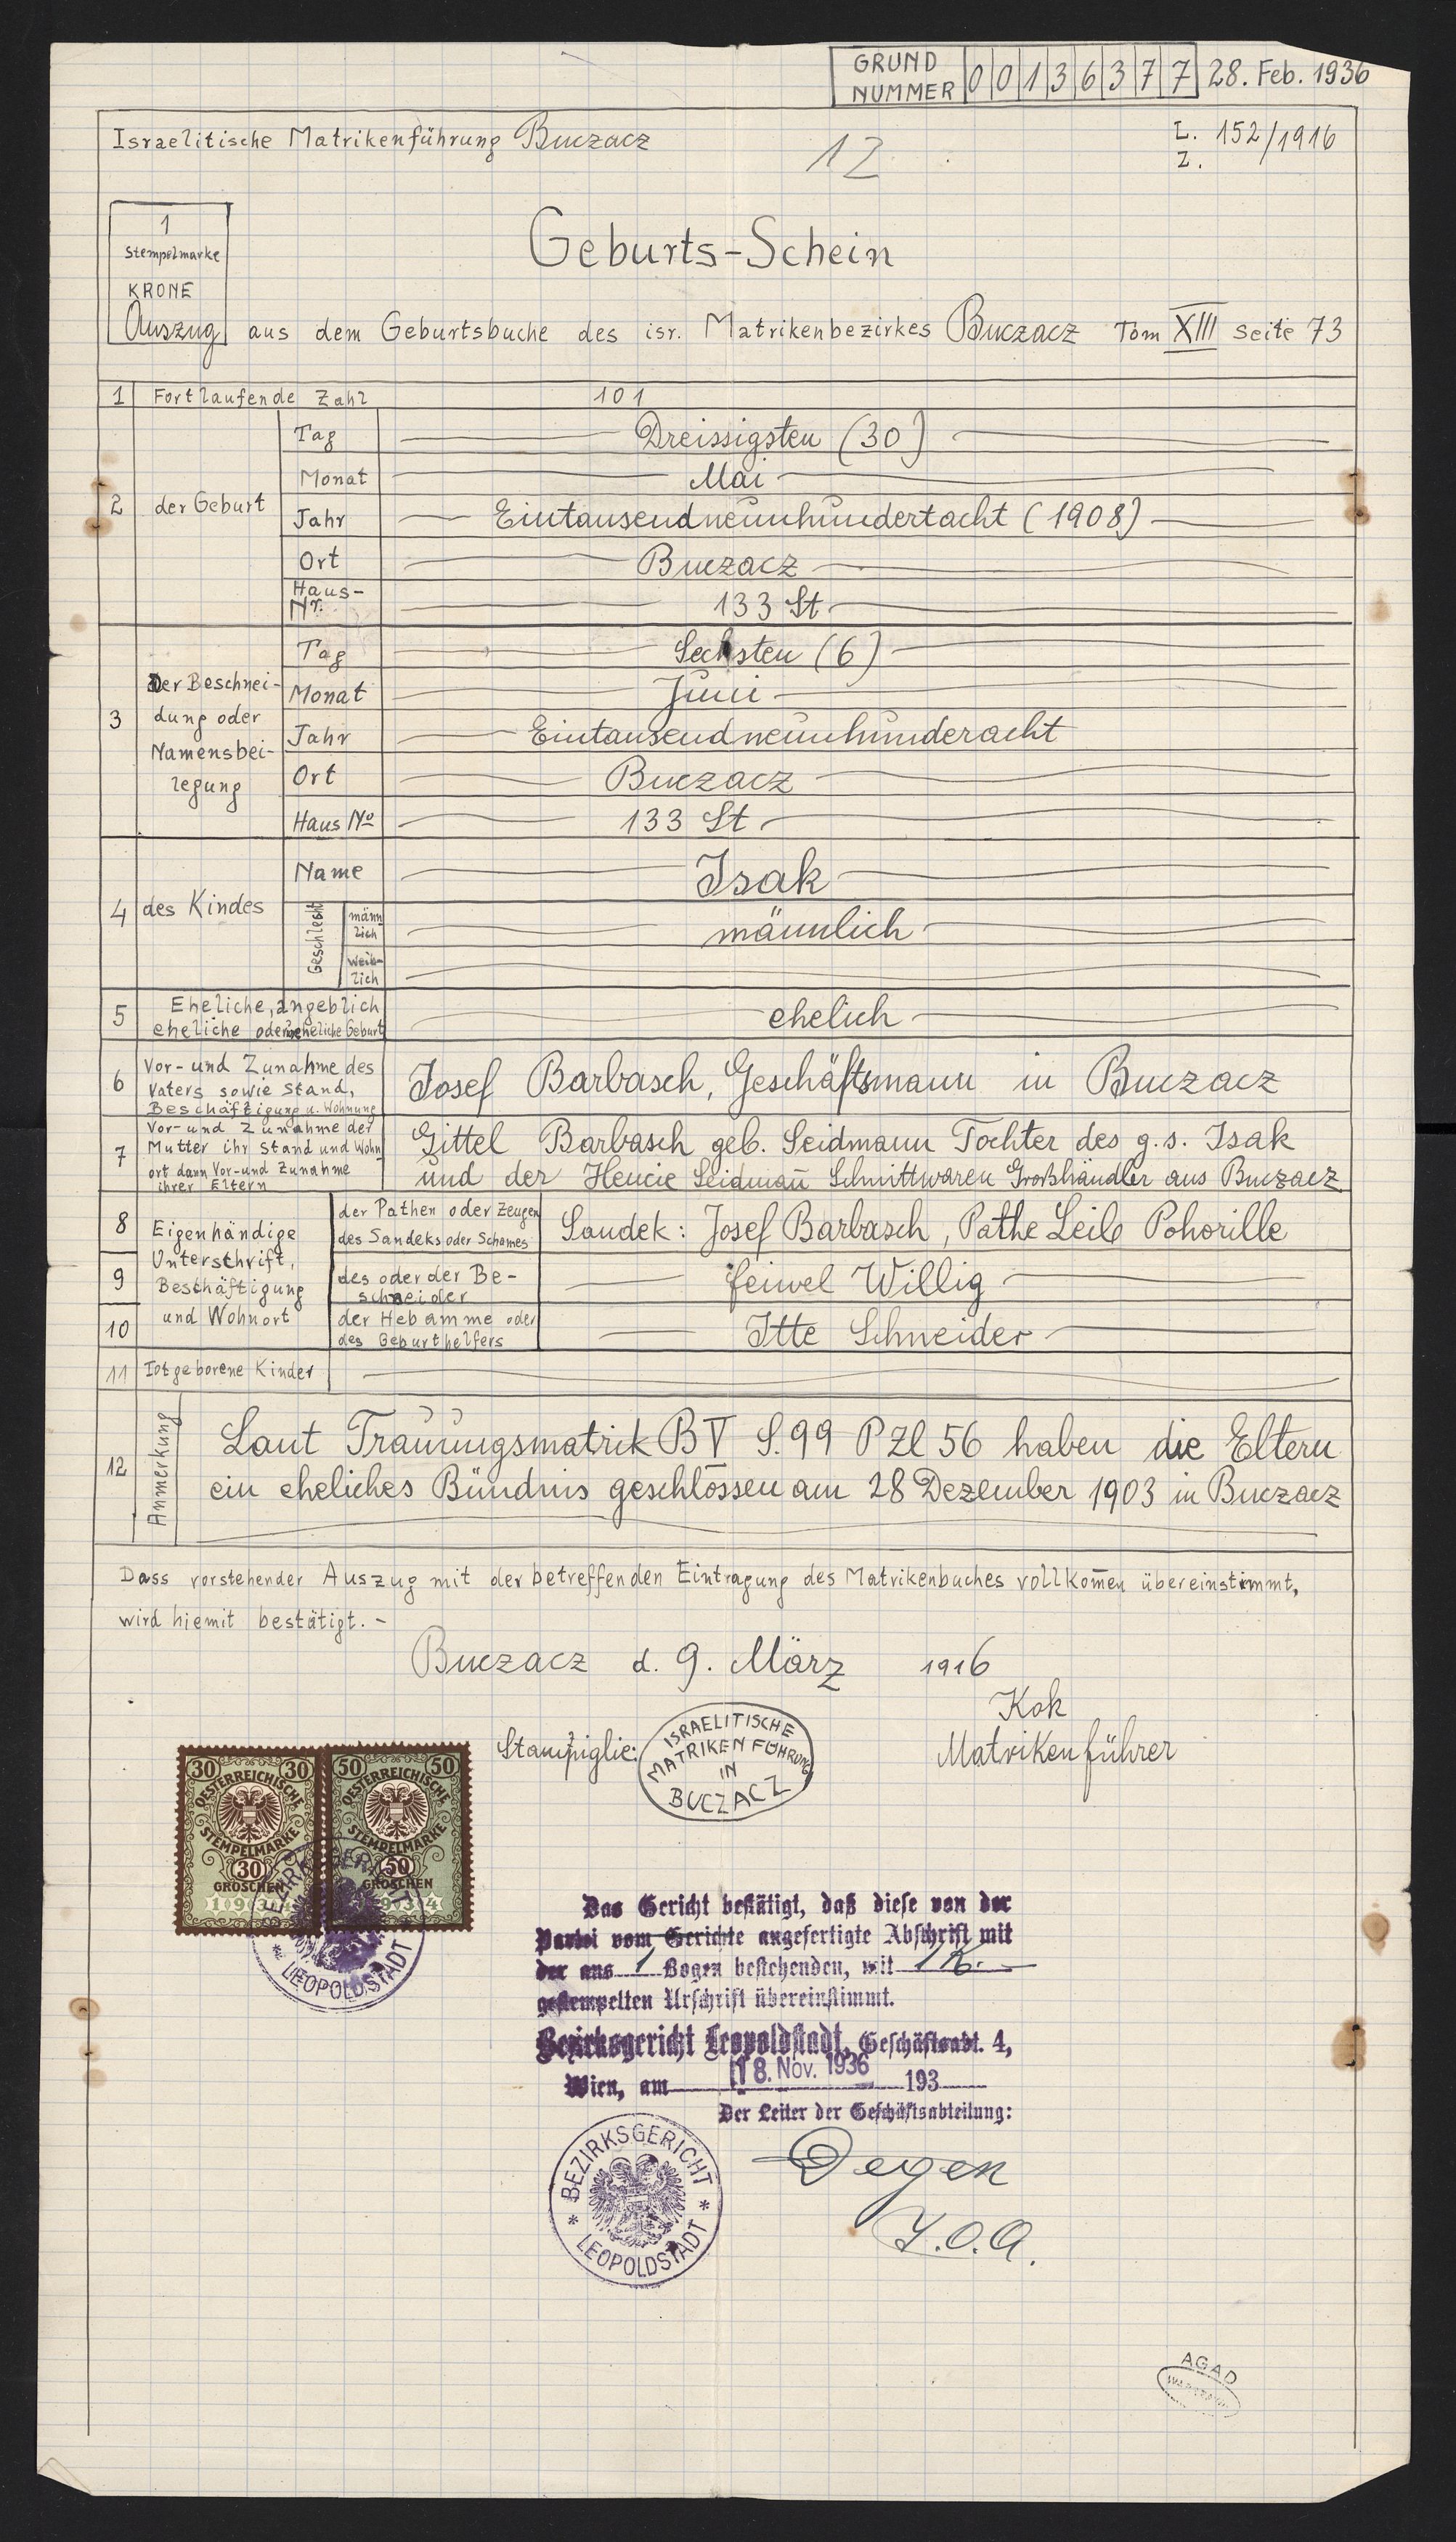 GRUND NUMMER 00136377 28. Feb. 1936
Israelitische Matrikenführung Buczacz
12
L. Z. 152/1916
1
Stempelmarke
KRONE
Geburts-Schein
Auszug aus dem Geburtsbuche des isr. Matrikenbezirkes Buczacz Tom XIII Seite 73
1 Fortlaufende Zahl 101
2 der Geburt
Tag Dreissigsten (30)
Monat Mai
Jahr Eintausendneunhundertacht (1908)
Ort Buczacz
Haus-Nr. 133 St
3 Der Beschnei-
dung oder
Namensbei-
legung
Tag Sechsten (6)
Monat Juni
Jahr Eintausendneunhunderacht
Ort Buczacz
Haus No 133 St
4 des Kindes
Name Isak
Geschlecht
männlich männlich
weiblich
5 Eheliche, angeblich
eheliche oder uneheliche Geburt
ehelich
6 Vor- und Zunahme des
Vaters sowie Stand,
Beschäftigung u. Wohnung
Josef Barbasch, Geschäftsmann in Buczacz
7 Vor- und Zunahme der
Mutter ihr Stand und Wohn
ort dann Vor-und Zunahme
ihrer Eltern
Gittel Barbasch geb. Seidmann Tochter des g.s. Isak
und der Hencie Seidmañ Schnittwaren Großhändler aus Buczacz
8 Eigenhändige
Unterschrift,
Beschäftigung
und Wohnort
der Pathen oder Zeugen
des Sandeks oder Schames
Sandek: Josef Barbasch, Pathe Leib Pohorille
9 des oder der Be-
schneider
Feiwel Willig
10 der Hebamme oder
des Geburthelfers
Itte Schneider
11 Totgeborene Kinder
12 Anmerkung
Laut Trauungsmatrik B V S. 99 P Zl 56 haben die Eltern
ein eheliches Bündnis geschlossen am 28 Dezember 1903 in Buczacz
Dass vorstehender Auszug mit der betreffenden Eintragung des Matrikenbuches vollkom̄en übereinstimmt,
wird hiemit bestätigt.-
Buczacz d. 9. März 1916
Kok
Matrikenführer
Stampiglie:
ISRAELITISCHE
MATRIKENFÜHRUNG
IN
BUCZACZ
30 30
OESTERREICHISCHE
STEMPELMARKE
30
GROSCHEN
1934
50 50
OESTERREICHISCHE
STEMPELMARKE
50
GROSCHEN
1934
BEZIRKSGERICHT
* LEOPOLDSTADT
Das Gericht bestätigt, daß diese von der
Partei vom Gerichte angefertigte Abschrift mit
der aus 1 Bogen bestehenden, mit 1 K.-
gestempelten Urschrift übereinstimmt.
Bezirksgericht Leopoldstadt, Geschäftsabt. 4,
Wien, am 18. Nov. 1936 193
Der Leiter der Geschäftsabteilung:
Degen
BEZIRKSGERICHT
* LEOPOLDSTADT *
AGAD